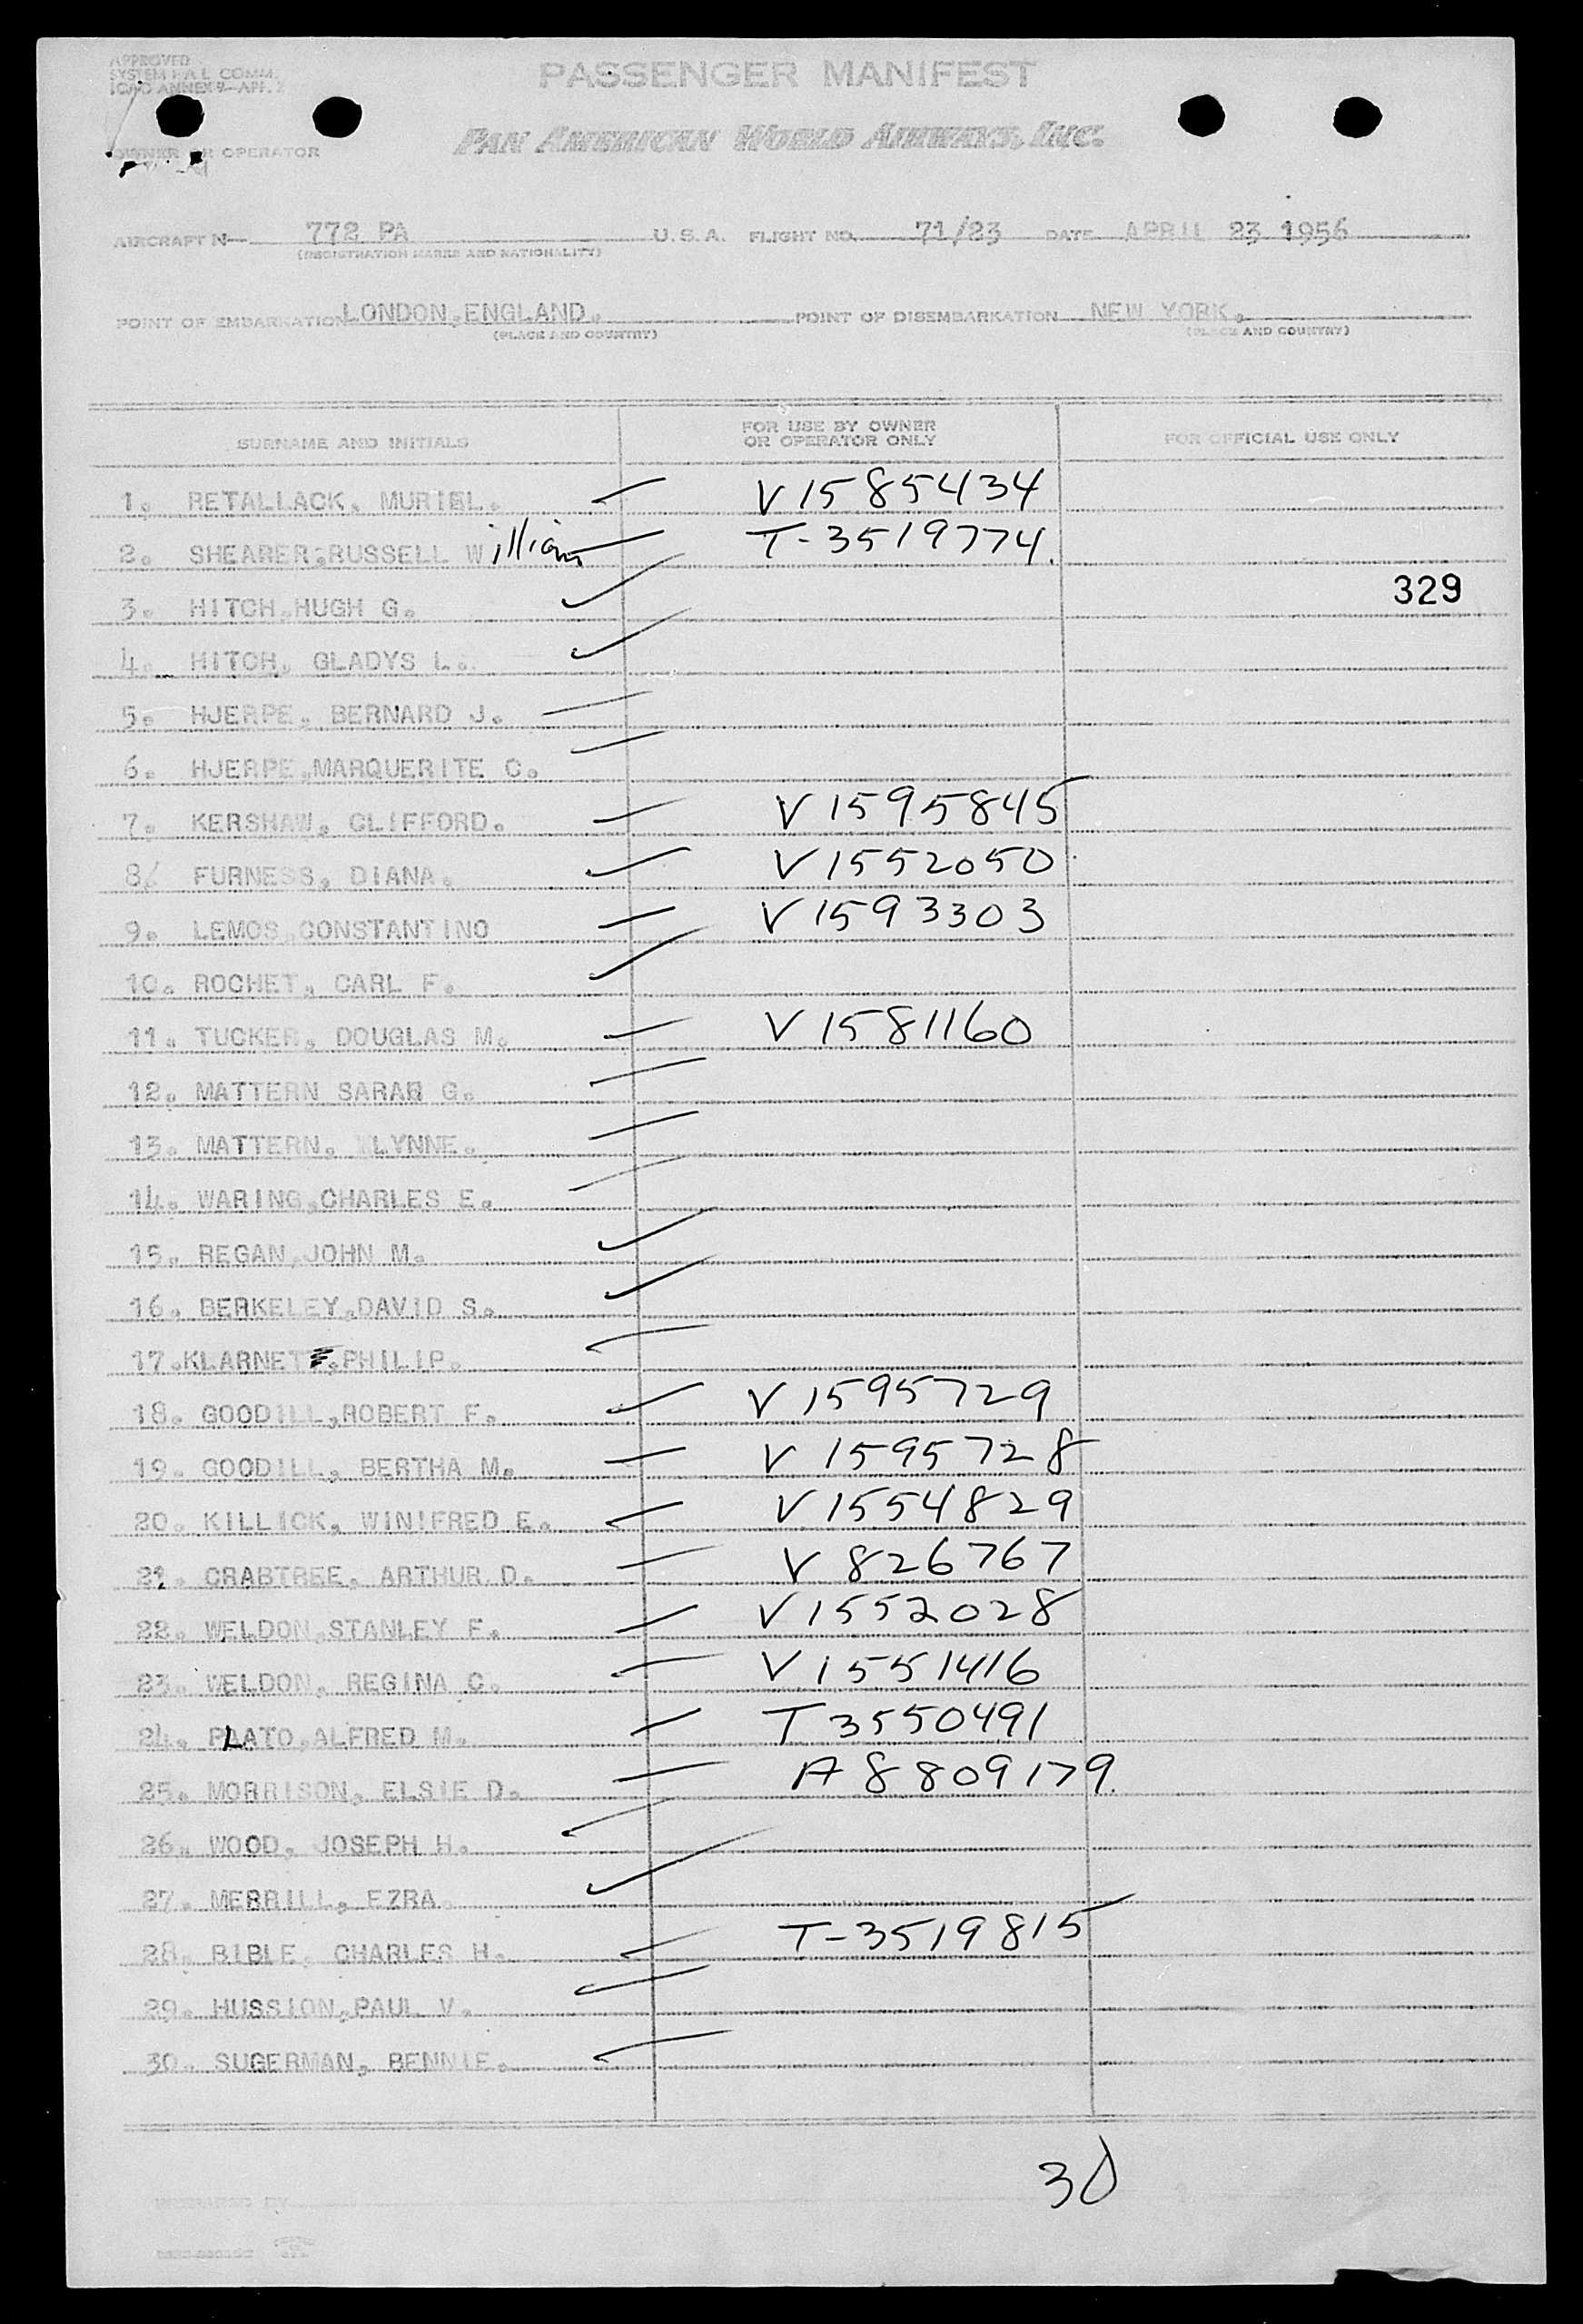 APPROVED
SYSTEM F.A.L. COMM.
ICAO ANNEX 9—APP. 2
PASSENGER MANIFEST
PAN AMERICAN WORLD AIRWAYS, INC.
OWNER OR OPERATOR
AIRCRAFT N— 772 PA U. S. A. FLIGHT NO. 71/23 DATE APRIL 23 1956
(REGISTRATION MARKS AND NATIONALITY)
POINT OF EMBARKATION LONDON,ENGLAND. POINT OF DISEMBARKATION NEW YORK.
(PLACE AND COUNTRY) (PLACE AND COUNTRY)
SURNAME AND INITIALS FOR USE BY OWNER OR OPERATOR ONLY FOR OFFICIAL USE ONLY
1. RETALLACK, MURIEL. V1585434
2. SHEARER,RUSSELL William T-3519774.
3. HITCH,HUGH G. 329
4. HITCH, GLADYS L.
5. HJERPE, BERNARD J.
6. HJERPE,MARQUERITE C.
7. KERSHAW, CLIFFORD. V1595845
8. FURNESS, DIANA. V1552050
9. LEMOS,CONSTANTINO V1593303
10. ROCHET, CARL F.
11. TUCKER, DOUGLAS M. V1581160
12. MATTERN SARAH G.
13. MATTERN, LYNNE.
14. WARING,CHARLES E.
15. REGAN,JOHN M.
16. BERKELEY,DAVID S.
17.KLARNET,PHILIP.
18. GOODILL,ROBERT F. V1595729
19. GOODILL, BERTHA M. V1595728
20. KILLICK, WINIFRED E. V1554829
21. CRABTREE, ARTHUR D. V826767
22. WELDON,STANLEY F. V1552028
23. WELDON, REGINA C. V1551416
24. PLATO,ALFRED M. T3550491
25. MORRISON, ELSIE D. A8809179
26. WOOD, JOSEPH H.
27. MERRILL, EZRA.
28. BIBLE, CHARLES H. T-3519815
29. HUSSION,PAUL V.
30. SUGERMAN, BENNIE.
30
PREPARED BY